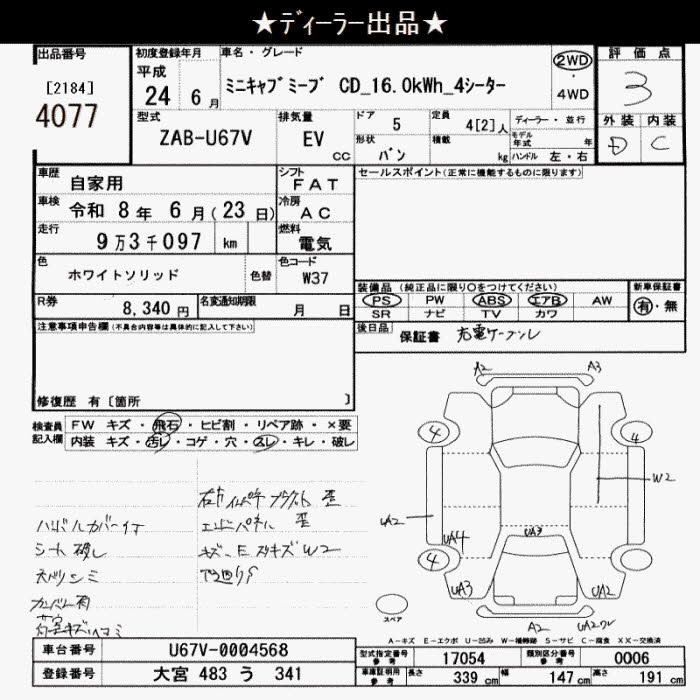 ★ディーラー出品★
出品番号 初度登録年月 車名・グレード 評価点
[2184] 平成 ミニキャブミーブ CD_16.0kWh_4シーター 2WD 3
4077 24 6月 ・4WD
型式 排気量 ドア 定員 ディーラー・並行 外装 内装
ZAB-U67V EV 5 4[2]人 モデル年式 年 D C
CC 形状 バン 積載 kg ハンドル 左・右
車歴 自家用 シフト FAT セールスポイント(正常に機能するものに限ります)
車検 令和 8年 6月(23日) 冷房 AC
走行 9万3千097 km 燃料 電気
色 ホワイトソリッド 色替 色コード W37
装備品 (純正品に限り○をつけてください) 新車保証書
R券 8,340円 名変通知期限 月 日 PS PW ABS エアB AW 有・無
SR ナビ TV カワ
注意事項申告欄(不具合内容等は具体的に記入して下さい) 後日品 保証書 充電ケーブル
修復歴 有〔箇所 〕
検査員記入欄 FW キズ・飛石・ヒビ割・リペア跡・×要
内装 キズ・汚レ・コゲ・穴・スレ・キレ・破レ
A2 A3
4 4
W2
UA2
UA4 UA3
4
UA3 UA2
A2
エンドパネル 歪
シート破レ キズ・E スリキズ W2
スペア
A-キズ E-エクボ U-凹み W-補修跡 S-サビ C-腐食 XX-交換済
車台番号 U67V-0004568 型式指定番号 参考 17054 類別区分番号 参考 0006
登録番号 大宮 483 う 341 車庫証明用 参考 長さ 339 cm 幅 147 cm 高さ 191 cm